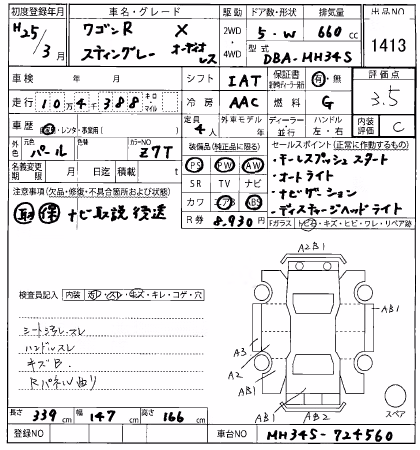 初度登録年月 車名・グレード 駆動 ドア数・形状 排気量 出品NO
H25/3月 ワゴンR X 2WD 4WD 5・W 660cc 1413
スティングレー オーディオレス 型式 DBA-MH34S
車検 年 月 シフト IAT 保証書 有・無 評価点 3.5
走行 10万4千388 キロ・マイル 冷房 AAC 燃料 G
車歴 レンタ・事務用( ) 定員 4人 外車モデル 年 ディーラー 並行 ハンドル 左・右 内装評価 C
外色 元色 パール 色替 カラーNO Z7T 装備品(純正品に限る) セールスポイント(正常に作動するもの)
名義変更期限 月 日迄 積載 t PS PW AW ・キーレスプッシュスタート
注意事項(欠品・修復・不具合箇所および状態) SR TV ナビ ・オートライト
取 保 ナビ取説後送 カワ エアB ABS ・ナビゲーション
R券 8,930円 ・ディスチャージヘッドライト
Fガラス トビ石・キズ・ヒビ・ワレ・リペア跡
検査員記入 内装 ヨゴレ・スレ・コゲ・穴・キレ
シートヨゴレ・スレ
ハンドルスレ
キズB
Rパネル曲り
A2B1
AB1
A3
A2
AB1
AB1
AB2
スペア
長さ 339cm 幅 147cm 高さ 166cm
登録NO 車台NO MH34S-724560